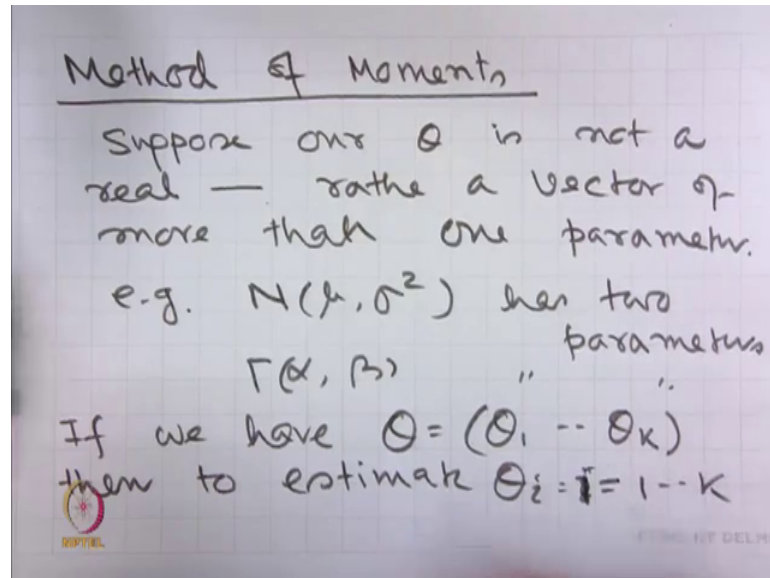 Method of Moments
Suppose our θ is not a
real — rathe a vector of
more than one parameter.
e.g. N(μ, σ²) has two
parameters
Γ(α, β) " "
If we have θ = (θ₁ -- θₖ)
then to estimate θᵢ : i = 1 -- K
NPTEL
IIT DELHI